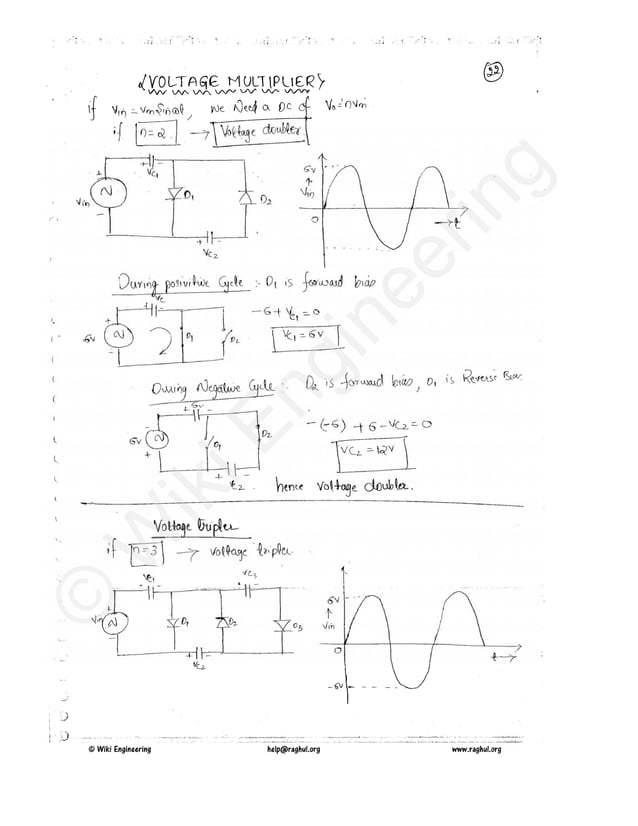 22
VOLTAGE MULTIPLIER
if Vin = Vm Sin ωt, We Need a DC of Vo = nVm
if n=2 → Voltage doubler
+ -
VC1
+
Vin
-
D1
D2
+ -
VC2
6V
↑
Vin
0
→ t
During posivitive Cycle :- D1 is forward bias
Vc
+ -
+
6V
-
D1
D2
-6 + VC1 = 0
VC1 = 6V
During Negative Cycle :- D2 is forward bias, D1 is Reverse Bias
+ 6V -
-
6V
+
D1
D2
+ -
VC2
-(-6) + 6 - VC2 = 0
VC2 = 12V
hence voltage doubler.
Voltage tripler
if n=3 → voltage tripler
VC1
+ -
VC3
+ -
+
Vin
-
D1
D2
D3
+ -
VC2
6V
↑
Vin
0
-6V
t →
© Wiki Engineering
© Wiki Engineering help@raghul.org www.raghul.org